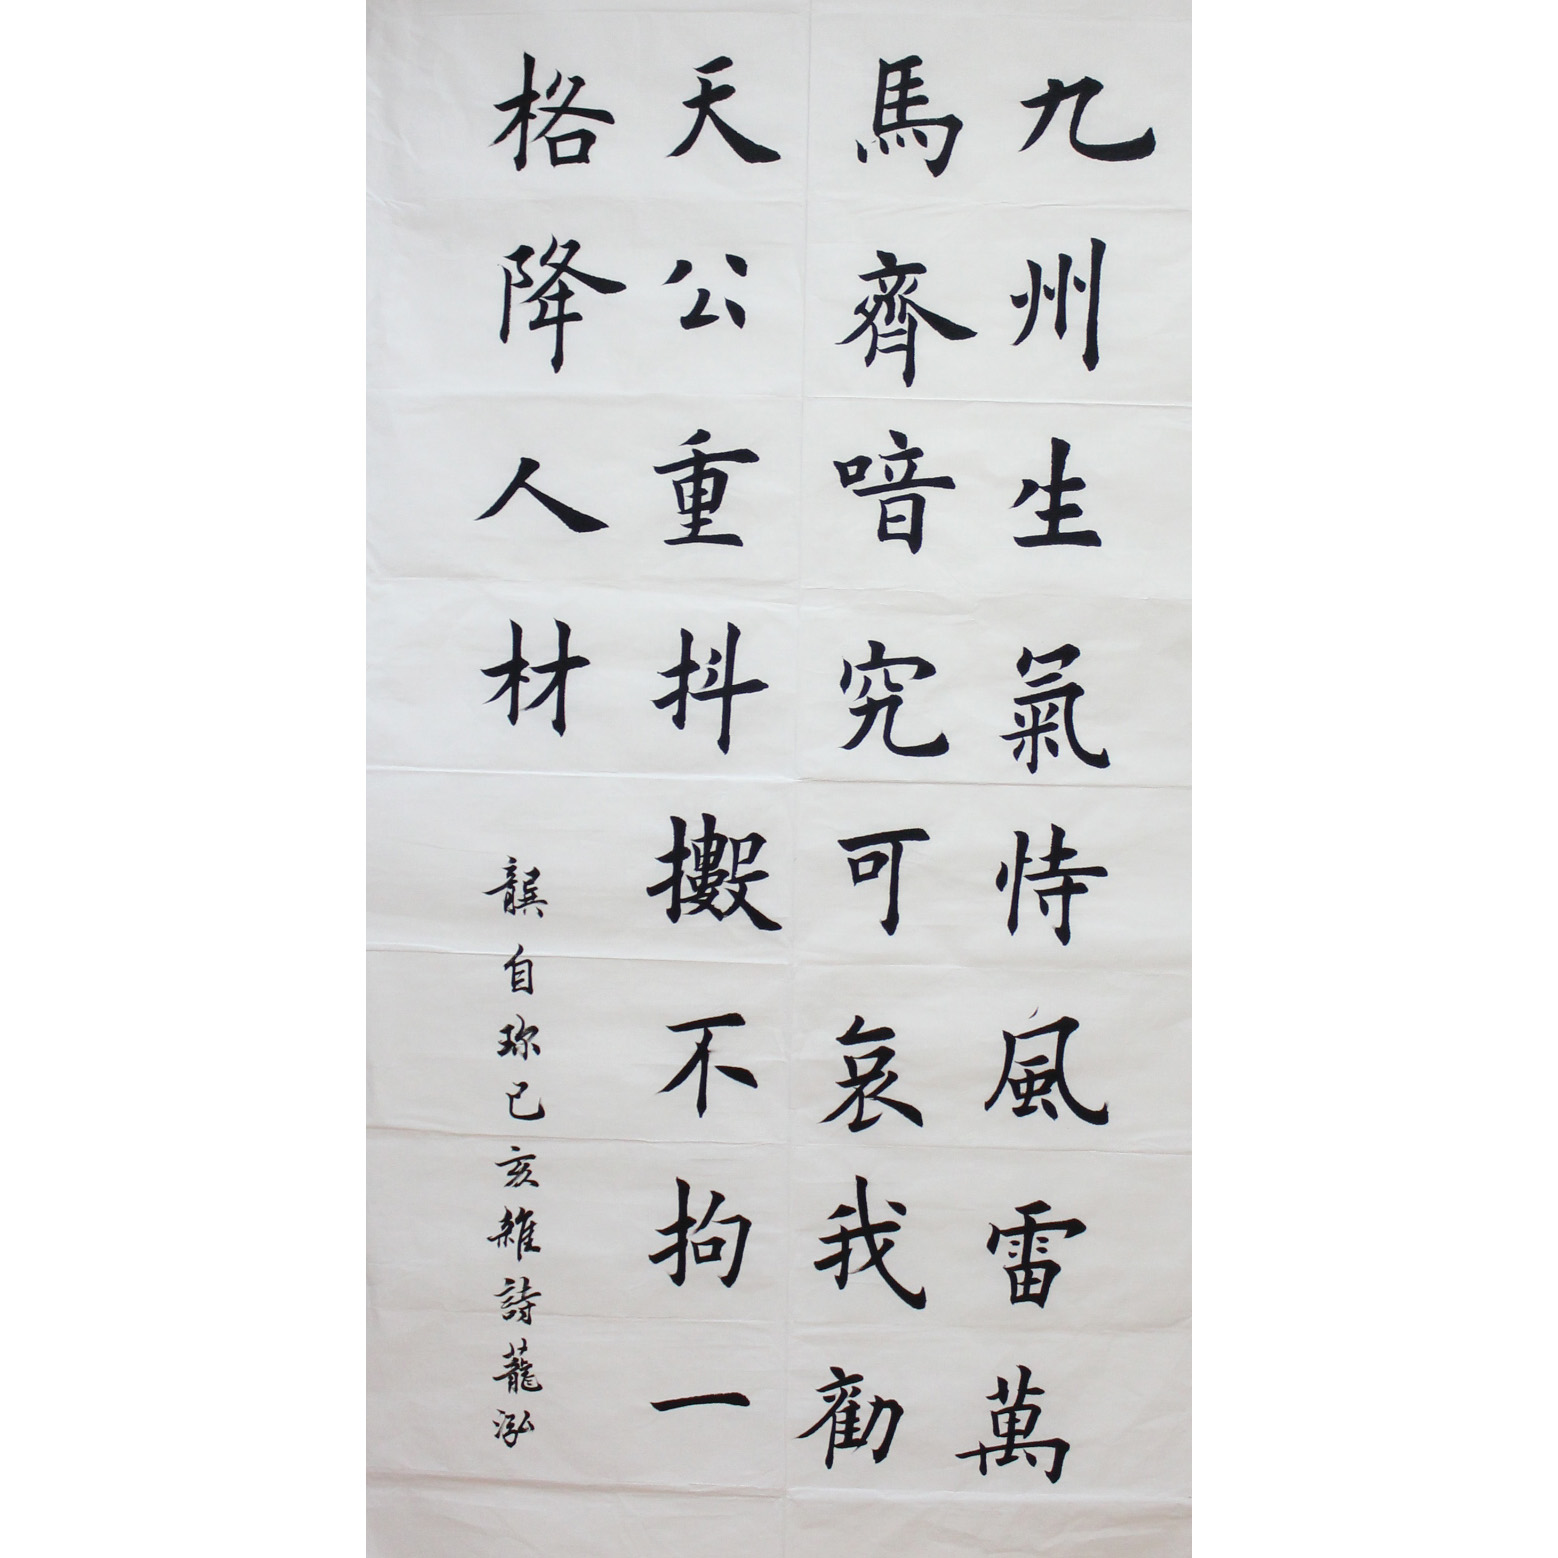 九州生氣恃風雷萬
馬齊喑究可哀我勸
天公重抖擻不拘一
格降人材
龔自珎己亥雜詩蘢泓